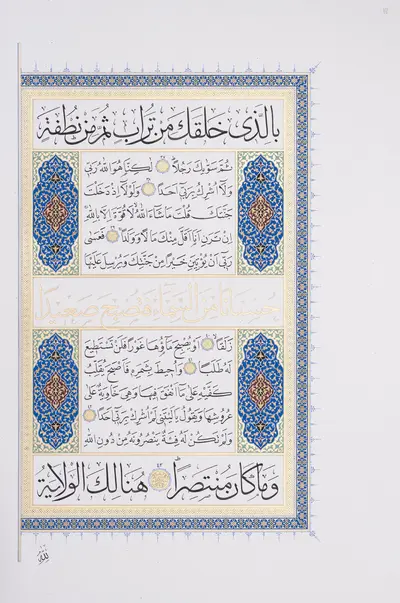 بِالَّذى خَلَقَكَ مِن تُرابٍ ثُمَّ مِن نُطفَةٍ
ثُمَّ سَوّيكَ رَجُلاً ۝ لٰكِنَّا هُوَ اللهُ رَبّى
وَلا اُشرِكُ بِرَبّى اَحَداً ۝ وَلَولا اِذ دَخَلتَ
جَنَّتَكَ قُلتَ ما شاءَ اللهُ لا قُوَّةَ اِلّا بِاللهِ
اِن تَرَنِ اَنَا اَقَلَّ مِنكَ مالاً وَوَلَداً ۝ فَعَسى
رَبّى اَن يُؤتِيَنِ خَيراً مِن جَنَّتِكَ وَيُرسِلَ عَلَيها
حُسباناً مِنَ السَّماءِ فَتُصبِحَ صَعيداً
زَلَقاً ۝ اَو يُصبِحَ ماؤُها غَوراً فَلَن تَستَطيعَ
لَهُ طَلَباً ۝ وَاُحيطَ بِثَمَرِه فَاَصبَحَ يُقَلِّبُ
كَفَّيهِ عَلى ما اَنفَقَ فيها وَهِىَ خاوِيَةٌ عَلى
عُروشِها وَيَقولُ يا لَيتَنى لَم اُشرِك بِرَبّى اَحَداً ۝
وَلَم تَكُن لَهُ فِئَةٌ يَنصُرونَهُ مِن دونِ اللهِ
وَما كانَ مُنتَصِراً ۝ هُنالِكَ الوَلايَةُ
لِلّٰهِ